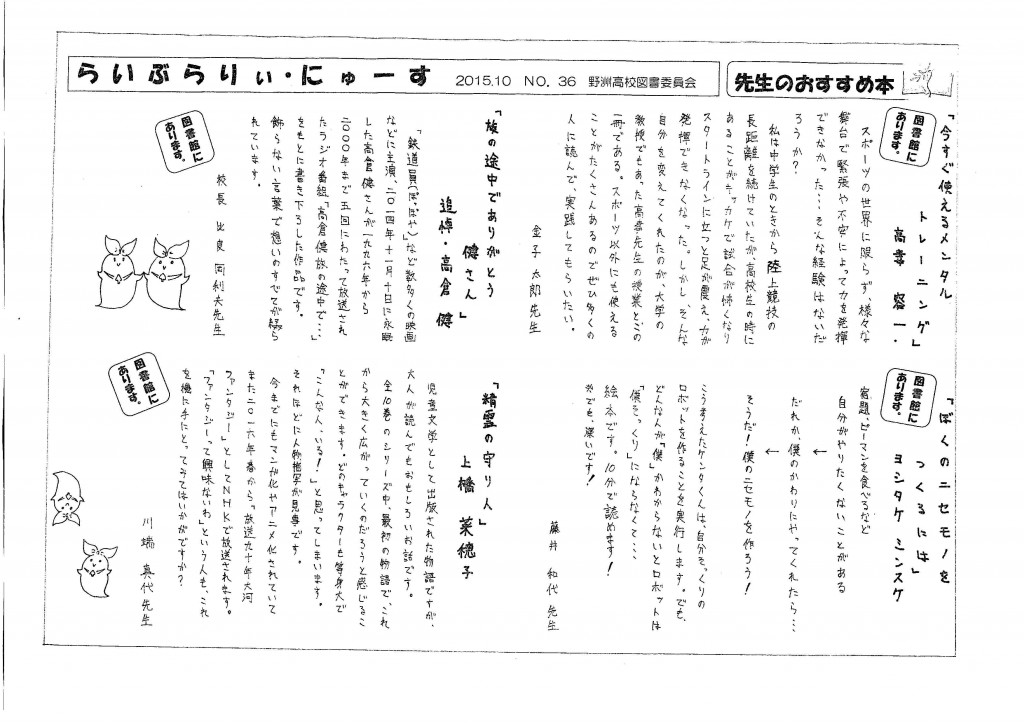 らいぶらりぃ・にゅーす
2015.10 NO.36 野洲高校図書委員会
先生のおすすめ本
「今すぐ使えるメンタル
トレーニング」
高妻 容一
図書館に
あります。
スポーツの世界に限らず、様々な
舞台で緊張や不安によって力を発揮
できなかった…そんな経験はないだ
ろうか？
私は中学生のときから陸上競技の
長距離を続けていたが、高校生の時に
あることがキッカケで試合が怖くなり
スタートラインに立つと足が震え、力が
発揮できなくなった。しかし、そんな
自分を変えてくれたのが、大学の
教授でもあった高妻先生の授業とこの
一冊である。スポーツ以外にも使える
ことがたくさんあるのでぜひ多くの
人に読んで、実践してもらいたい。
金子 太郎先生
「旅の途中でありがとう
健さん」
追悼・高倉 健
「鉄道員（ぽっぽや）」など数多くの映画
などに主演、二〇一四年十一月十日に永眠
した高倉健さんが一九九六年から
二〇〇〇年まで五回にわたって放送され
たラジオ番組「高倉健旅の途中で…」
をもとに書き下ろした作品です。
飾らない言葉で想いのすべてが綴ら
れています。
図書館に
あります。
校長 比良 岡利夫先生
「ぼくのニセモノを
つくるには」
ヨシタケ シンスケ
図書館に
あります。
宿題、ピーマンを食べるなど
自分がやりたくないことがある
↓
だれか、僕のかわりにやってくれたら…
↓
そうだ！僕のニセモノを作ろう！
こう考えたケンタくんは、自分そっくりの
ロボットを作ることを実行します。でも、
どんなんが「僕」かわからないとロボットは
「僕そっくり」にならなくて…
絵本です。10分で読めます！
でも、深いです！
藤井 和代 先生
「精霊の守り人」
上橋 菜穂子
児童文学として出版された物語ですが、
大人が読んでもおもしろいお話です。
全10巻のシリーズ中、最初の物語で、これ
から大きく広がっていくのだろうと感じるこ
とができます。どのキャラクターも等身大で
「こんな人、いる！」と思ってしまいます。
それほどに人物描写が見事です。
今までにもマンガ化やアニメ化されていて
また二〇一六年春から"放送九十年大河
ファンタジー"としてNHKで放送されます。
「ファンタジーって興味ないわ」という人も、これ
を機に手にとってみてはいかがですか？
図書館に
あります。
川端 真代先生